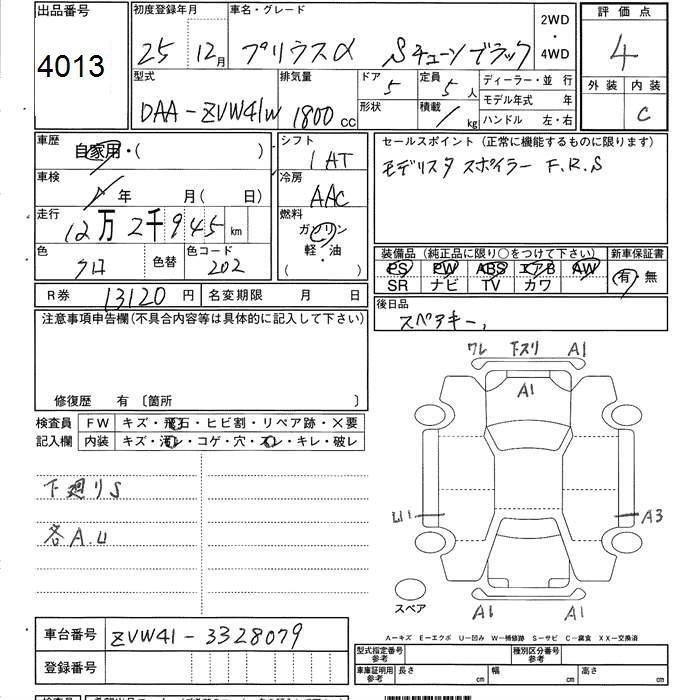 出品番号
4013
初度登録年月
25 12月
車名・グレード
プリウスα Sチューンブラック
2WD
・
4WD
評価点
4
型式
DAA-ZVW41W
排気量
1800 cc
ドア
5
形状
定員
5人
積載
/ kg
ディーラー・並 行
モデル年式 年
ハンドル 左・右
外装
内装
C
車歴
自家用・( )
車検
年 月(日)
走行
12万2千945 km
色
クロ
色替
色コード
202
シフト
1AT
冷房
AAC
燃料
ガソリン
軽・油
( )
セールスポイント (正常に機能するものに限ります)
モデリスタ スポイラー F.R.S
装備品 (純正品に限り○をつけて下さい)
PS PW ABS エアB AW
SR ナビ TV カワ
新車保証書
有・無
R券 13120 円
名変期限 月 日
後日品
スペアキー,
注意事項申告欄(不具合内容等は具体的に記入して下さい)
修復歴 有 〔箇所 〕
検査員
記入欄
FW キズ・飛石・ヒビ割・リペア跡・×要
内装 キズ・汚レ・コゲ・穴・スレ・キレ・破レ
下廻りS
各A.U
ワレ 下スリ A1
A1
U1
A3
A1 A1
スペア
A-キズ E-エクボ U-凹み W-補修跡 S-サビ C-腐食 XX-交換済
車台番号
ZVW41-3328079
登録番号
型式指定番号
参考
種別区分番号
参考
車庫証明用
参考
長さ cm
幅 cm
高さ cm